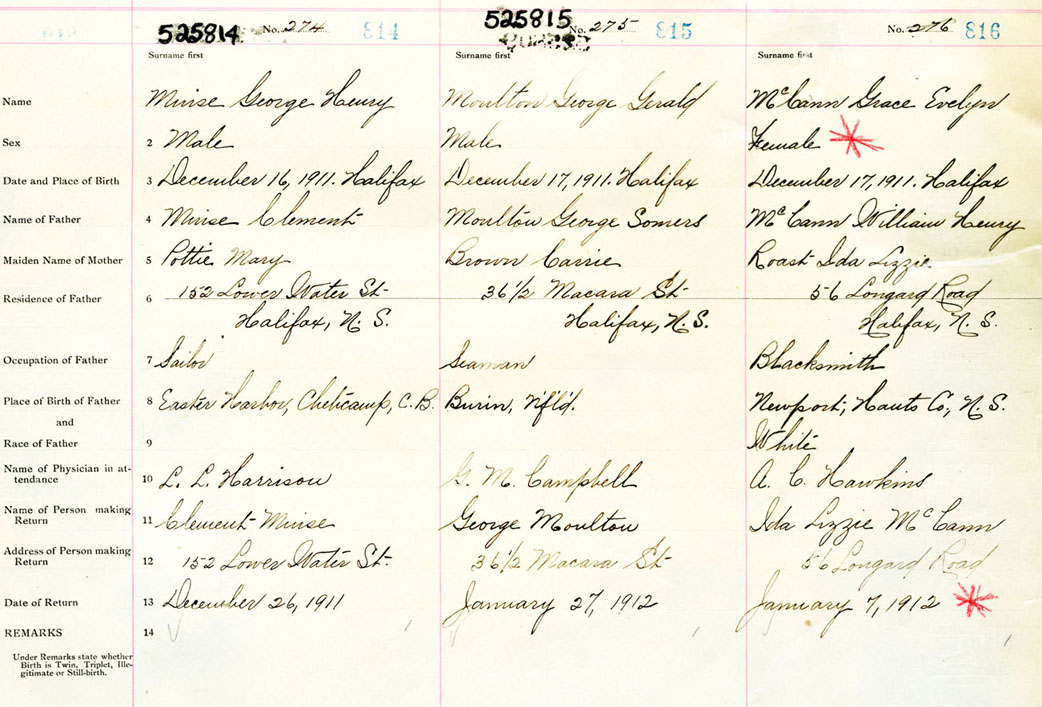 525814. No. 274 814
525815 No. 275 815
No. 276 816
Surname first Surname first Surname first
Name Minse George Henry Moulton George Gerald McCann Grace Evelyn
Sex 2 Male Male Female
Date and Place of Birth 3 December 16, 1911. Halifax December 17, 1911. Halifax December 17, 1911. Halifax
Name of Father 4 Minse Clement Moulton George Somers McCann William Henry
Maiden Name of Mother 5 Pottie Mary Brown Carrie Roast Ida Lizzie
Residence of Father 6 152 Lower Water St 36 1/2 Macara St 56 Longard Road
Halifax, N. S. Halifax, N. S. Halifax, N. S.
Occupation of Father 7 Sailor Seaman Blacksmith
Place of Birth of Father 8 Easter Harbor, Cheticamp, C. B. Burin, Nfld. Newport, Hants Co, N. S.
and
Race of Father 9 White
Name of Physician in at-
tendance 10 L. L. Harrison G. M. Campbell A. C. Hawkins
Name of Person making
Return 11 Clement Minse George Moulton Ida Lizzie McCann
Address of Person making
Return 12 152 Lower Water St. 36 1/2 Macara St 56 Longard Road
Date of Return 13 December 26, 1911 January 27, 1912 January 7, 1912
REMARKS 14
Under Remarks state whether
Birth is Twin, Triplet, Ille-
gitimate or Still-birth.